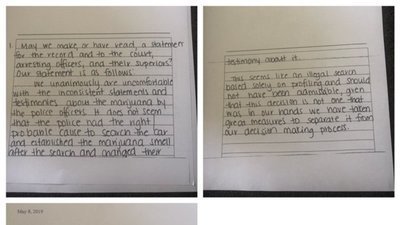 1. May we make, or have read, a statement
for the record and to the court,
arresting officers, and their superiors?
Our statement is as follows:
We unanimously are uncomfortable
with the inconsistent statements and
testimonies about the marijuana by
the police officers. It does not seem
that the police had the right
probable cause to search the car
and established the marijuana smell
after the search and changed their
testimony about it.
This seems like an illegal search
based solely on profiling and should
not have been admissible, given
that this decision is not one that
was in our hands we have taken
great measures to separate it from
our decision making process.
May 8, 2019